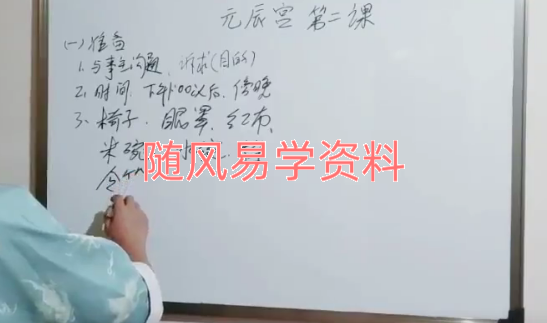 元辰宫 第二课
(一)准备
1. 与事主沟通，诉求(目的)
2. 时间，下午1:00以后，傍晚
3. 椅子，眼罩，红布，
米碗
随风易学资料